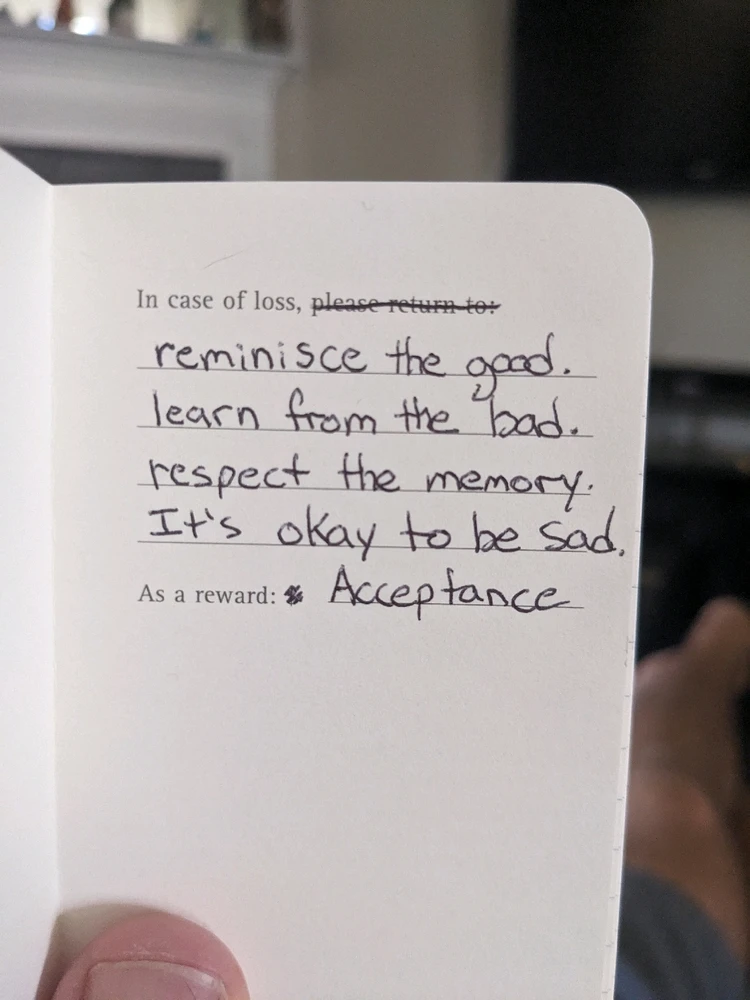 In case of loss, please return to:
reminisce the good.
learn from the bad.
respect the memory.
It's okay to be sad.
As a reward: Acceptance